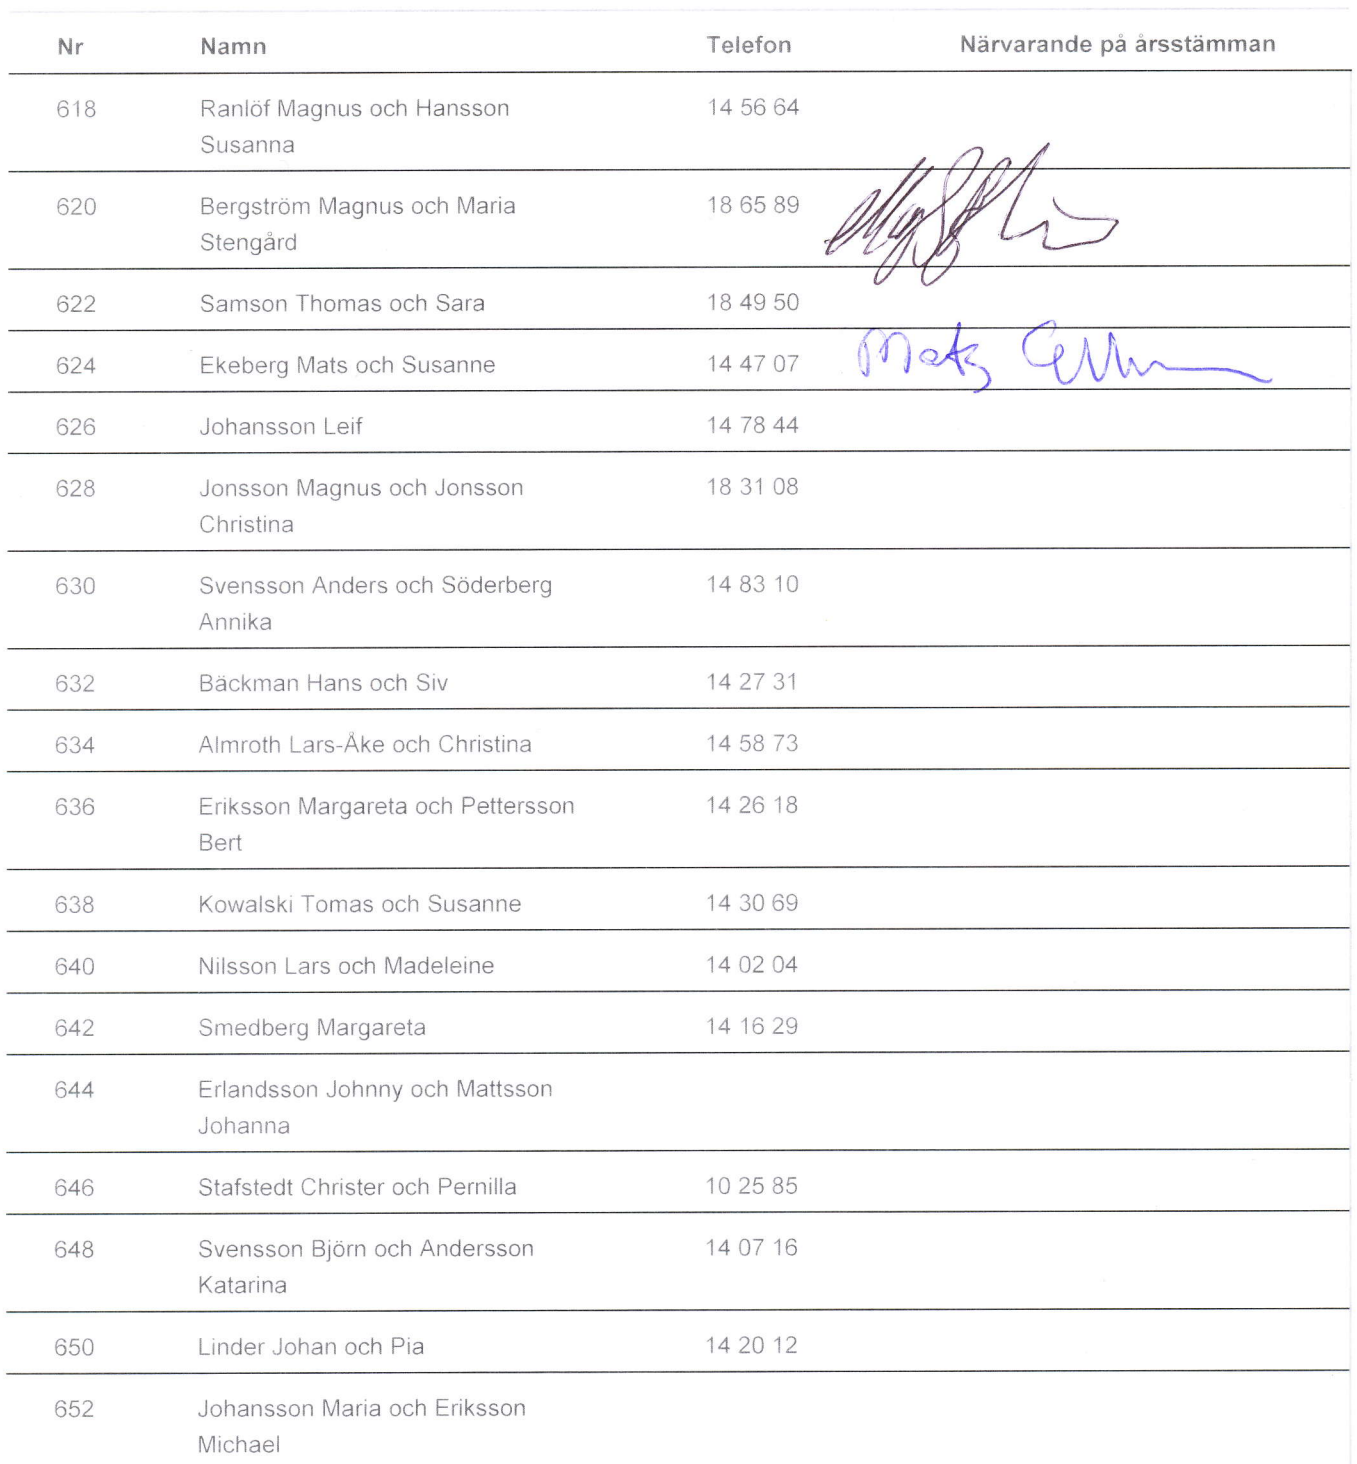 Nr Namn Telefon Närvarande på årsstämman
618 Ranlöf Magnus och Hansson 14 56 64
Susanna
620 Bergström Magnus och Maria 18 65 89
Stengård
622 Samson Thomas och Sara 18 49 50
624 Ekeberg Mats och Susanne 14 47 07 Mats
626 Johansson Leif 14 78 44
628 Jonsson Magnus och Jonsson 18 31 08
Christina
630 Svensson Anders och Söderberg 14 83 10
Annika
632 Bäckman Hans och Siv 14 27 31
634 Almroth Lars-Åke och Christina 14 58 73
636 Eriksson Margareta och Pettersson 14 26 18
Bert
638 Kowalski Tomas och Susanne 14 30 69
640 Nilsson Lars och Madeleine 14 02 04
642 Smedberg Margareta 14 16 29
644 Erlandsson Johnny och Mattsson
Johanna
646 Stafstedt Christer och Pernilla 10 25 85
648 Svensson Björn och Andersson 14 07 16
Katarina
650 Linder Johan och Pia 14 20 12
652 Johansson Maria och Eriksson
Michael